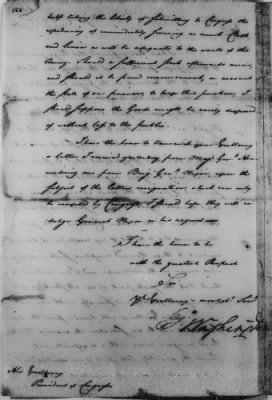 half taking the liberty of submitting to Congress the
expediency of immediately forming as much Cloth
and Linen as will be adequate to the wants of the
Army. Should a sufficient stock afterwards arrive,
and should it be found inconvenient, on account
the state of our finances to keep this purchase, I
should suppose the Goods might be easily disposed
of without loss to the public.
I have the honor to transmit your Excellency
a letter I received yesterday from Majr Genl
one from Brigr Genl upon the
subject of the latters resignation, which can only
be accepted by Congress. I should hope they will
General in his request
I have the honor to be
with the greatest Respect
Yr Excellency's most obt Servt
Go: Washington
His Excellency
President of Congress